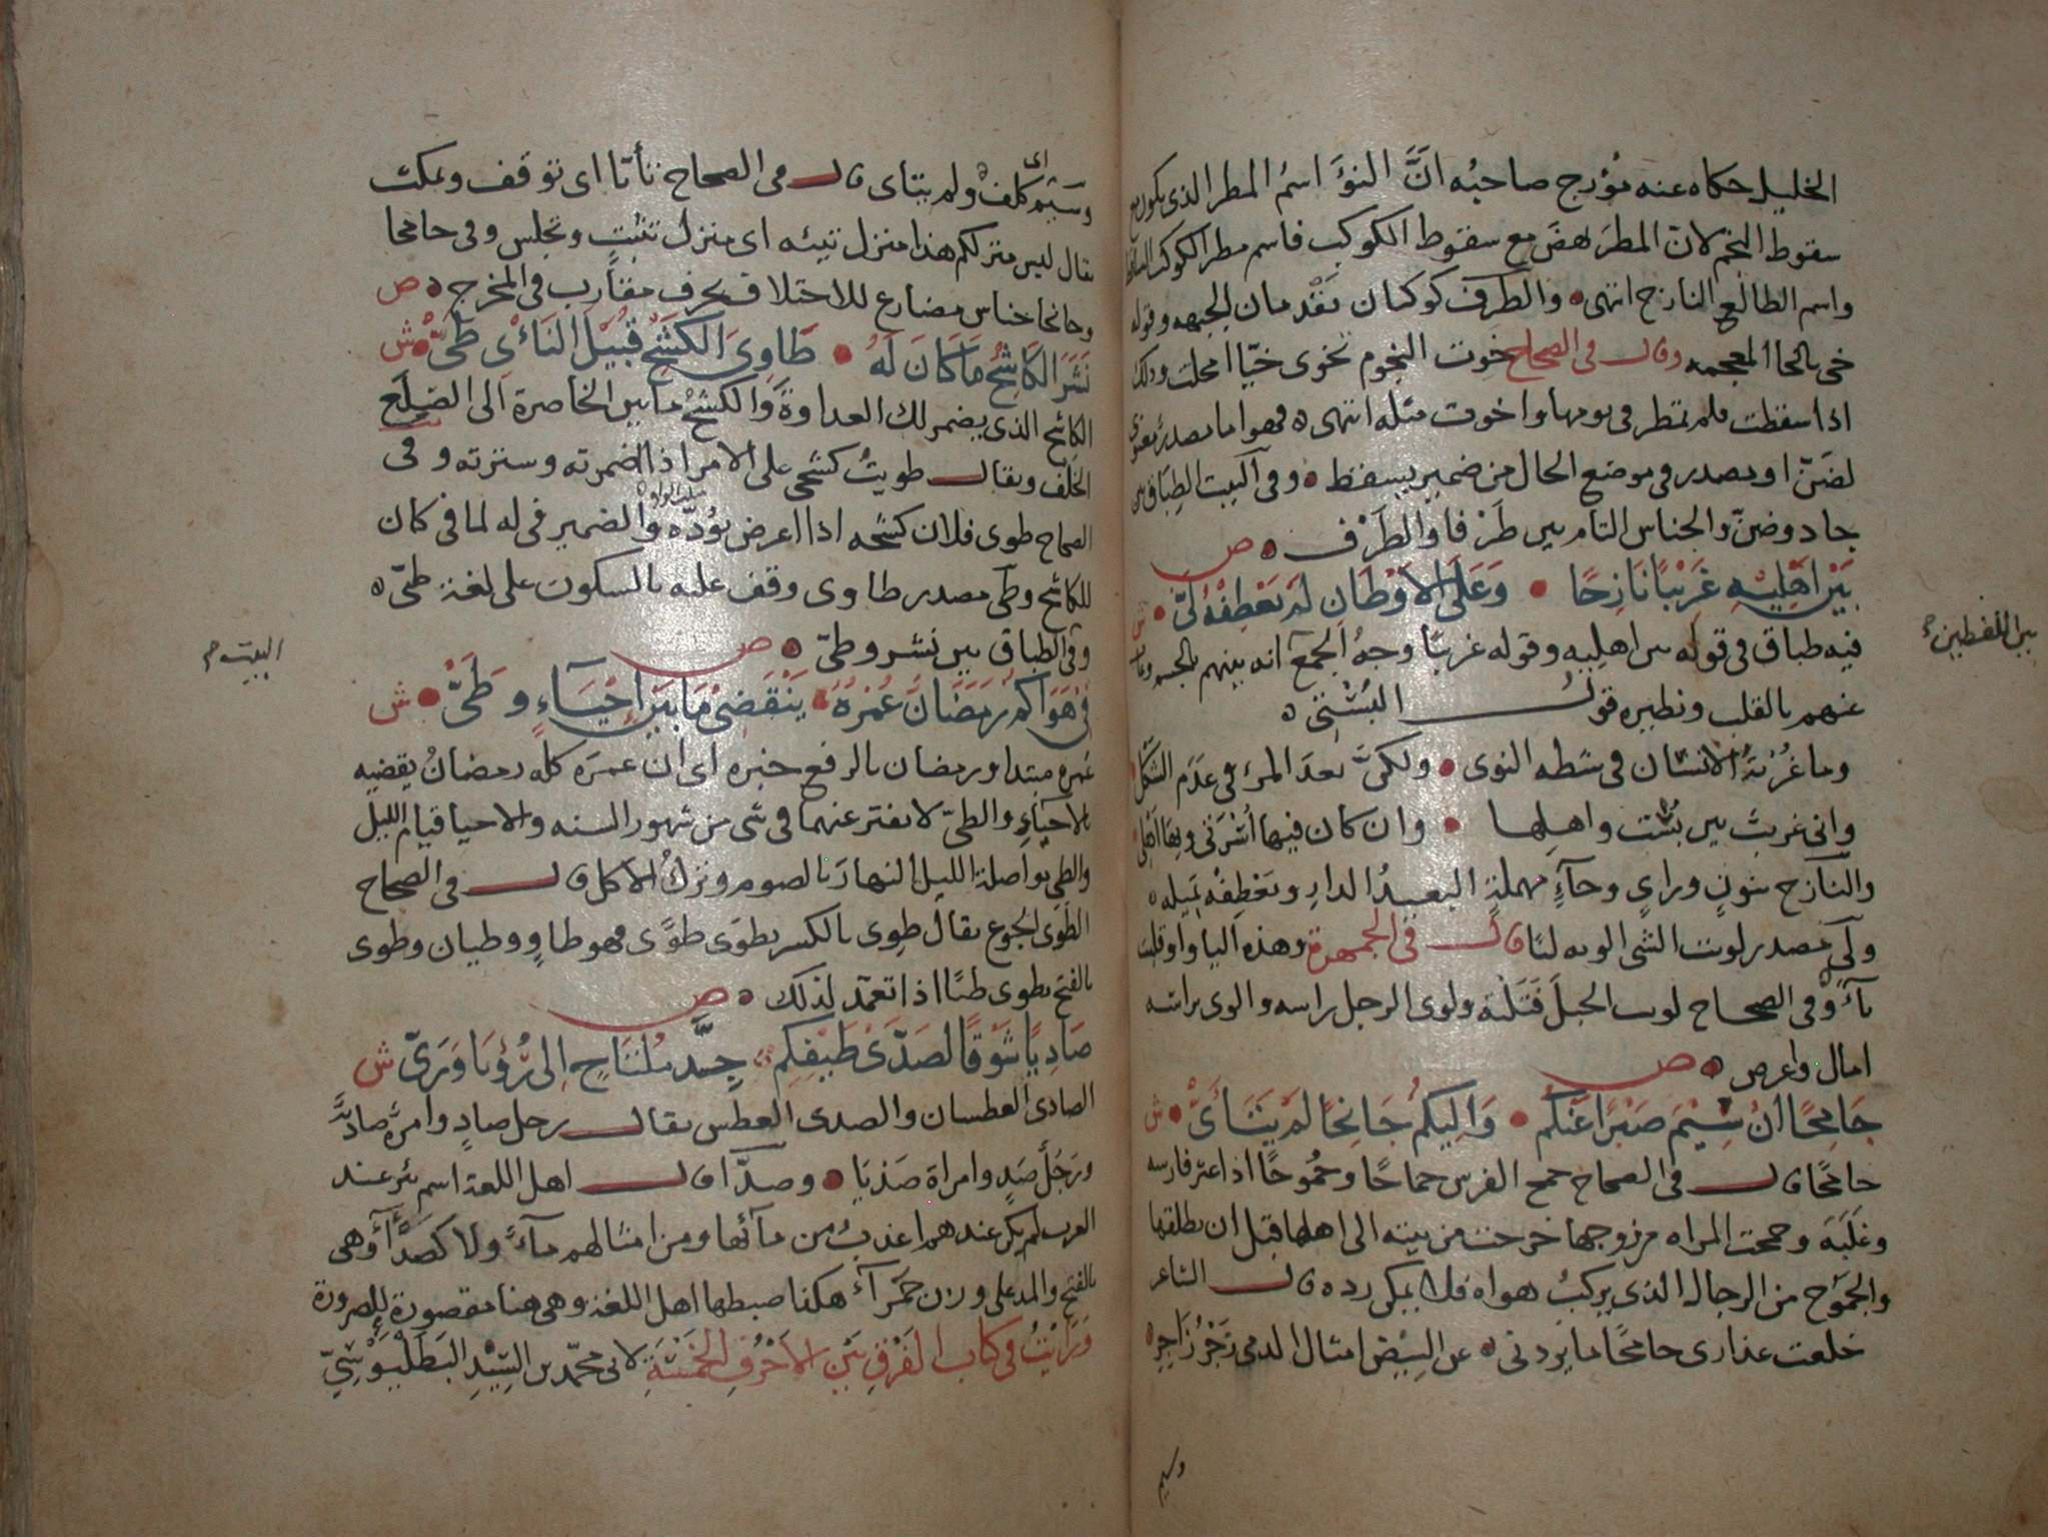 الخليل حكاه عنه مؤرج صاحبه انَّ النؤَ اسمُ المطر الذى يكون مع
سقوط النجم لان المطرَ نهضَ مع سقوط الكوكب فاسم مطر الكوكب الساقط
واسم الطالع البارح انتهى والطرف كوكبان يقدمان الجبهه وقوله
خى بالخا المعجمه وقال فى الصحاح خوت النجوم تخوى خيّا امحلت وذلك
اذا سقطت فلم تمطر فى نومها واخوت مثله انتهى فهو اما مصدر معنوى
لضَنّ او مصدر فى موضع الحال من ضمير يسقط وفى البيت الطباق بين
جاد وضنّ والجناس التام بين طَرْفا والطَرْف ص
بَيْنَ اَهْلِيْهِ غَرِيْبًا نَازِحًا وَعَلَى الاَوْطَانِ لَمْ يَعْطِفْهُ لَىّْ ش
فيه طباق فى قوله بين اهليه وقوله غريبًا وجهُ الجمع انه بينهم بالجسم وغاب
عنهم بالقلب ونظيره قولُ البُسْتِىِّ
وما غُرْبَةُ الانسان فى شطه النوى ولكنَّ بعدَ المرء فى عَدَم الشَكل
وانى غريب بين بُسْت واهلها وان كان فيها اُسْرتى وبها اهلى
والنازح بنونٍ وزاىٍ وحآءٍ مهملةٍ البعيدُ الدارِ ويَعْطِفْه يَميله
ولَىّ مصدر لويت الشى الويه ليًا قال فى الجمهرة وهذه اليا واو قلبت
يآءً وفى الصحاح لويت الحبلَ فَتَلْته ولوى الرجل راسه والوى براسه
امال واعرض ص
جَامِحًا اَنْ سِيْمَ صَبْرًا عَنْكُمُ وَاِلَيْكُمْ جَانِحًا لَمْ يَتَأَىّْ ش
جامحًا قال فى الصحاح جمح الفرس جماحًا وجُموحًا اذا اعتز فارسه
وغَلَبَهَ وجمحت المراه من زوجها خرجت من بيته الى اهلها قبل ان يطلقها
والجَمُوح من الرجال الذى يركبُ هواه فلا يمكن رده قال الشاعر
خلعت عذارى جامحًا ما يردنى عن البِيْض امثال الدمى زَجْرُ زَاجِرِ
بين اللفظين
وسيم
اى
وسَيْم كلف ولم يتاى قال فى الصحاح تأيّا اى توقف وتمكث
يقال ليس منزلكم هذا منزل تئيه اى منزل تثبتٍ وتحبس وفى جامحا
وجانحا جناس مضارع للاختلاف بحرف مقارب فى المخرج ص
نَشَرَ الكَاشِحُ مَا كَانَ لَهُ طَاوِىَ الكَشْحِ قُبَيْلَ النَأْىِ طَىّْ ش
الكاشح الذى يضمر لك العداوةَ وَالكشحُ ما بين الخاصرة الى الضلَع
الخَلْف ويقال طويتُ كشحى على الامر اذا اضمرته وسترته وفى
الصحاح طوى فلان كشحه اذا اعرض بِوُدّه والضمير فى له لما فى كان
للكاشح وطى مصدر طاوى وقف عليه بالسكون على لغة طَىّ
وفى الطباق بين نشر وطىّ ص
البيت م
فِىْ هَوَاكمْ رَمَضَانٌ عُمْرُهُ يَنْقَضِىْ مَا بَيْنَ اِحْيَاءٍ وَطَىّْ ش
عمره مبتدا ورمضان بالرفع خبره اى ان عمرَه كلَّه رمضانُ يقضيه
بالاحياءِ والطىّ لا يفتر عنهما فى شى من شهور السنه والاحيا قيام الليل
والطى مواصلة الليل النهارَ بالصوم وتركُ الاكل قال فى الصحاح
الطَوَى الجوع يقال طوِى بالكسر يطوَى طوًى فهو طاوٍ وطيان وطوى
بالفتح يطوى طيًا اذا تعمّد لذلك ص
صَادِيًا شَوْقًا لصَدّى طَيْفِكِمْ جِدَّ مُلْتَاحٍ اِلى رُؤيَا وَرَىّْ ش
الصادى العطشان والصدى العطش يقال رجل صادٍ وامرأة صادية
ورَجُلٌ صَدٍ وامراة صَدْيَا وصدّا قال اهل اللغة اسم بئر عند
العرب لم يكن عندهم اعذبُ من مآئها ومن امثالهم مآءٌ ولا كصَدَّآءَ وهى
بالفتح والمد على وزن حَمْرآءَ هكذا ضبطها اهل اللغة وهى هنا مقصورة للضرورة
وَرَايْتُ فى كتاب الفَرْقِ بَيْنَ الاَحْرُفِ الخَمْسَةِ لابى محمّد بن السِيْدِ البَطَلْيَوْسِىّ